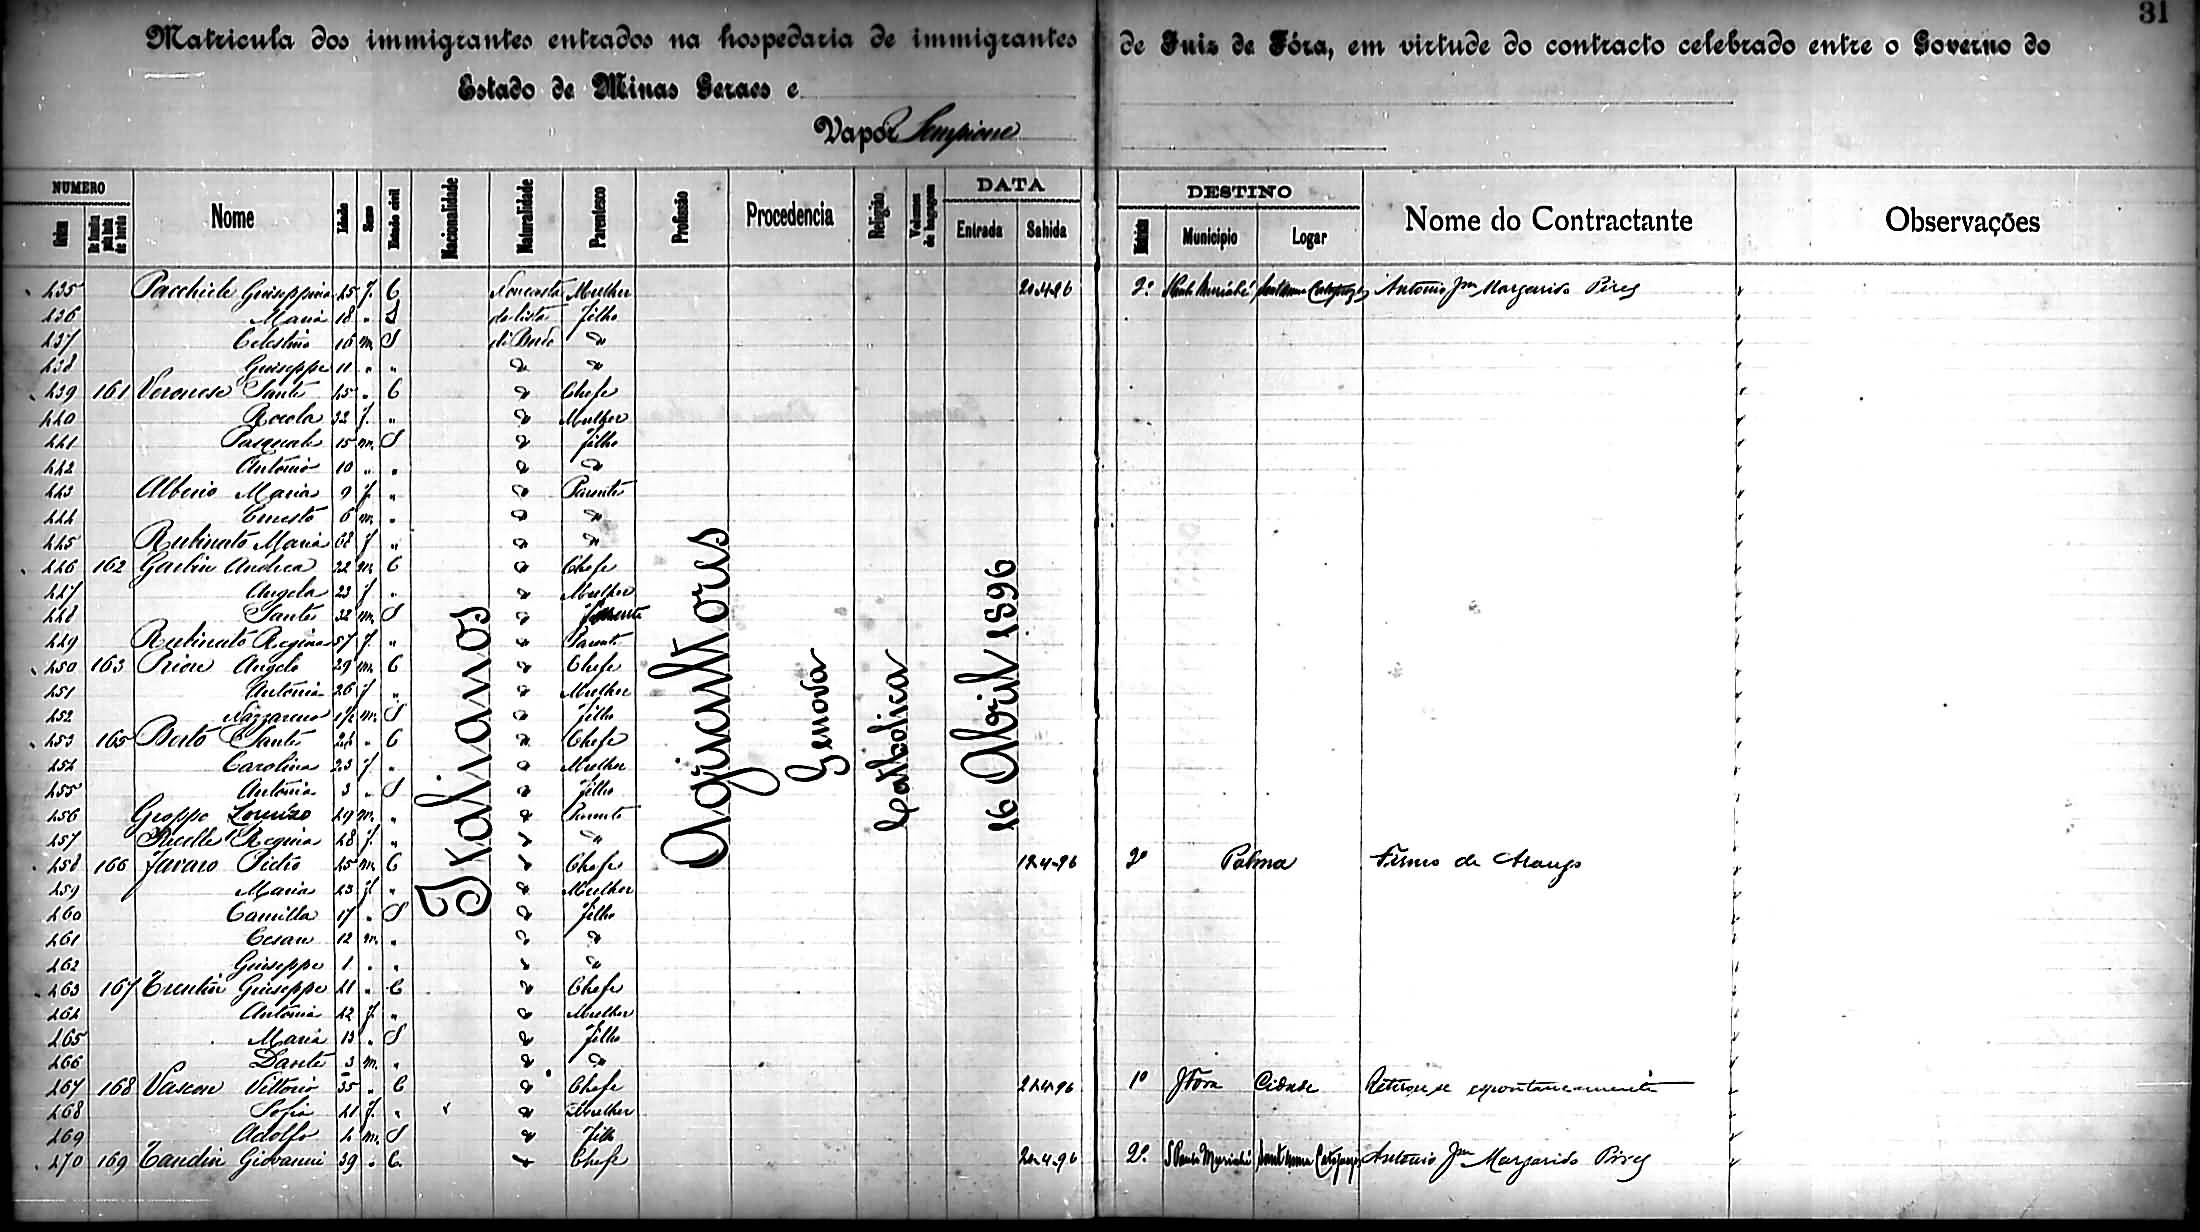 31
Matricula dos immigrantes entrados na hospedaria de immigrantes de Juiz de Fóra, em virtude do contracto celebrado entre o Governo do
Estado de Minas Geraes e
Vapor Sempione
NUMERO Nome Idade Sexo Estado civil Nacionalidade Naturalidade Parentesco Profissão Procedencia Religião Volumes de bagagem DATA DESTINO Nome do Contractante Observações
Ordem Entrada Sahida Municipio Logar
Italianos
Agricultores
Genova
Catholica
16 Abril 1896
435 Giuseppina 45 f. C Não consta Mulher 21-4-96 2º Antonio Jm Margarido Pires
436 Maria 18 " S da lista filho
437 Celestino 16 m. S di Bordo "
438 Giuseppe 11 " " " "
439 161 Veronese Sante 45 " C " Chefe
440 32 f. " " Mulher
441 Pasquale 15 m. S " filho
442 Antonio 10 " " " "
443 Maria 9 f. " " Parente
444 Ernesto 6 m. " " "
445 Rubinato Maria 68 f " " "
446 162 Garbin Andrea 22 m. C " Chefe
447 Angela 23 f " " Mulher
448 Sante 32 m. S "
449 Rubinato Regina 57 f. " " Parente
450 163 Angelo 29 m. C " Chefe
451 Antonia 26 f " " Mulher
452 Nazzareno m. S " filho
453 165 Berto Sante 28 " C " Chefe
454 Carolina 23 f " " Mulher
455 Antonia 3 " S " filho
456 Groppo Lorenzo 49 m. " " Parente
457 Regina 48 f. " " "
458 166 Favaro Pietro 45 m. C " Chefe 18-4-96 2º Palma Firmo de Araujo
459 Maria 43 f " " Mulher
460 Camilla 17 " S " filho
461 Cesare 12 m. " " "
462 Giuseppe 1 " " " "
463 167 Trentin Giuseppe 41 " C " Chefe
464 Antonia 42 f. " " Mulher
465 Maria 13 " S " filho
466 Dante 3 m. " " "
467 168 Vascon Vittorio 35 " C " Chefe 21-4-96 1º J Fora Cidade Retirou-se espontaneamente
468 Sofia 41 f. " " Mulher
469 Adolfo 4 m. S " filho
470 169 Giovanni 39 " C " Chefe 21-4-96 2º S Paulo Muriahé Antonio Jm Margarido Pires